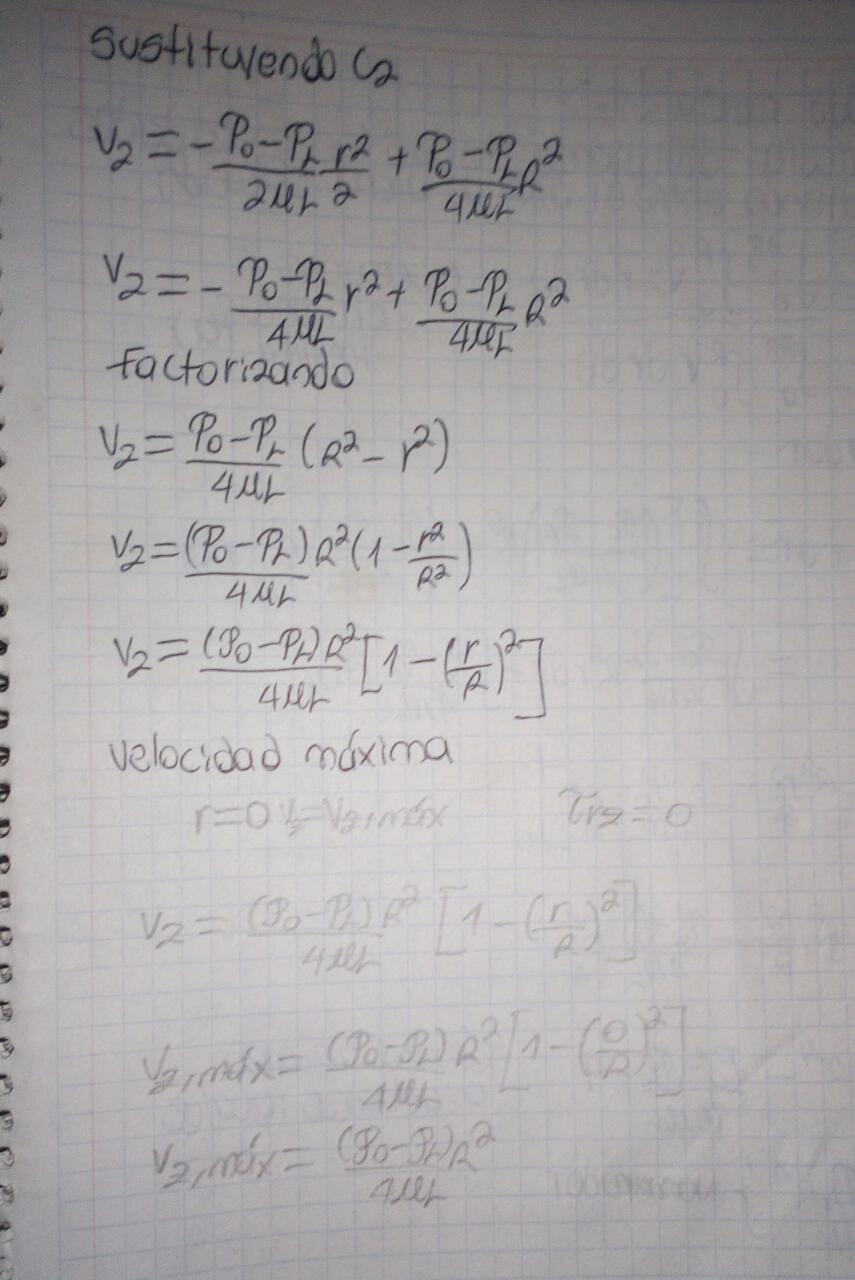 Sustituyendo C2
V2 = - P0-PL/2μL r²/2 + P0-PL/4μL R²
V2 = - P0-PL/4μL r² + P0-PL/4μL R²
factorizando
V2 = P0-PL/4μL (R² - r²)
V2 = (P0-PL)/4μL R² (1 - r²/R²)
V2 = (P0-PL)R²/4μL [1 - (r/R)²]
velocidad máxima
r=0 Vz=Vz,máx τrz=0
Vz = (P0-PL)R²/4μL [1 - (r/R)²]
Vz,máx = (P0-PL)R²/4μL [1 - (0/R)²]
Vz,máx = (P0-PL)R²/4μL